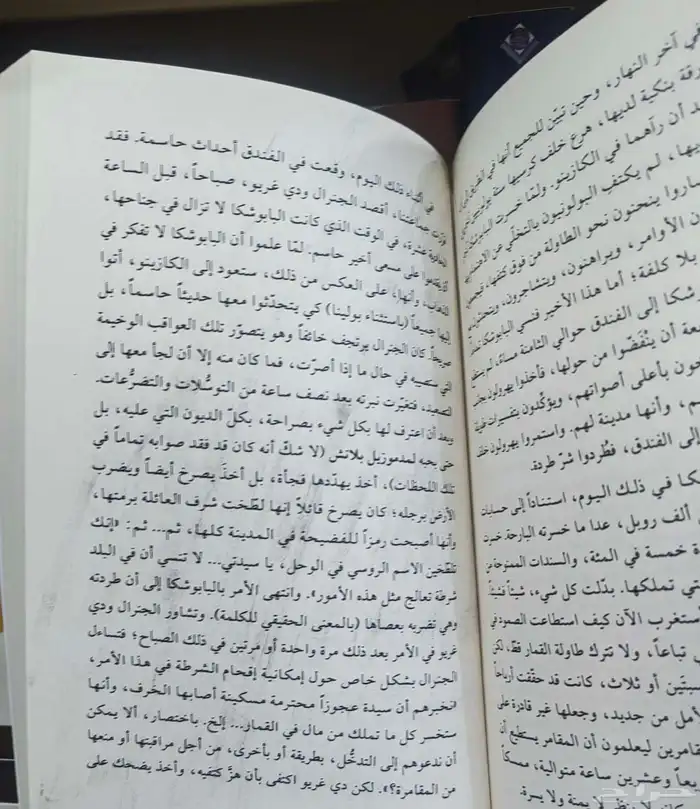 في آخر النهار، وحين تبيّن للجميع أنها في
رقة بنكية لديها، هرع خلف كرسيها ستة بولونيين
د أن رآهما في الكازينو. ولمّا خسرت البابوشكا
يها، لم يكتفِ البولونيون بالتخلّي عن
ساروا ينحنون نحو الطاولة من فوق كتفها،
ن الأوامر، ويراهنون، ويتشاجرون،
بلا كلفة؛ أما هذا الأخير فنسي البابوشكا
شكا إلى الفندق حوالي الثامنة مساءً، لم
عة أن يُنفَضّوا من حولها، فأخذوا يهرولون
حون بأعلى أصواتهم، ويؤكّدون بتفسيرات
م، وأنها مدينة لهم. واستمروا يهرولون خلف
إلى الفندق، فطُردوا شرّ طردة.
كا في ذلك اليوم، استناداً إلى حسابات
ألف روبل، عدا ما خسرته البارحة. خسرت
ة خمسة في المئة، والسندات الممنوحة من
تي تملكها. بذلّت كل شيء، شيئاً فشيئاً
ستغرب الآن كيف استطاعت الصمود في
تباعاً، ولا تترك طاولة القمار قط، لكن
ستّين أو ثلاث، كانت قد حقّقت أرباحاً
لأمل من جديد، وجعلها غير قادرة على
قامرين ليعلمون أن المقامر يستطيع أن
بعاً وعشرين ساعة متوالية، ممسكاً
يمنة ولا يسرة.
في أثناء ذلك اليوم، وقعت في الفندق أحداث حاسمة. فقد
قرّرت جماعتنا، أقصد الجنرال ودي غريو، صباحاً، قبل الساعة
الحادية عشرة، في الوقت الذي كانت البابوشكا لا تزال في جناحها،
أن يقدموا على مسعى أخير حاسم. لمّا علموا أن البابوشكا لا تفكر في
الذهاب، وأنها، على العكس من ذلك، ستعود إلى الكازينو، أتوا
إليها جميعاً (باستثناء بولينا) كي يتحدّثوا معها حديثاً حاسماً، بل
صريحاً. كان الجنرال يرتجف خائفاً وهو يتصوّر تلك العواقب الوخيمة
التي ستصيبه في حال ما إذا أصرّت، فما كان منه إلا أن لجأ معها إلى
التصعيد، فتغيّرت نبرته بعد نصف ساعة من التوسُّلات والتضرُّعات.
وبعد أن اعترف لها بكل شيء بصراحة، بكلّ الديون التي عليه، بل
حتى بحبه لمدموزيل بلانش (لا شكّ أنه كان قد فقد صوابه تماماً في
تلك اللحظات)، أخذ يهدّدها فجأة، بل أخذ يصرخ أيضاً ويضرب
الأرض برجله؛ كان يصرخ قائلاً إنها لطّخت شرف العائلة برمتها،
وأنها أصبحت رمزاً للفضيحة في المدينة كلها، ثم... ثم: «إنك
تلطّخين الاسم الروسي في الوحل، يا سيدتي... لا تنسي أن في البلد
شرطة تعالج مثل هذه الأمور». وانتهى الأمر بالبابوشكا إلى أن طردته
وهي تضربه بعصاها (بالمعنى الحقيقي للكلمة). وتشاور الجنرال ودي
غريو في الأمر بعد ذلك مرة واحدة أو مرتين في ذلك الصباح؛ فتساءل
الجنرال بشكل خاص حول إمكانية إقحام الشرطة في هذا الأمر،
لتخبرهم أن سيدة عجوزاً محترمة مسكينة أصابها الخَرف، وأنها
ستخسر كل ما تملك من مال في القمار... إلخ. باختصار، ألا يمكن
أن ندعوهم إلى التدخُّل، بطريقة أو بأخرى، من أجل مراقبتها أو منعها
من المقامرة؟». لكن دي غريو اكتفى بأن هزَّ كتفيه، وأخذ يضحك على